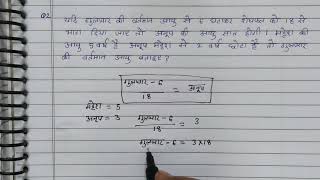 Q2 यदि गुलजार की वर्तमान आयु से 6 घटाकर शेषफल को 18 से
भाग दिया जाए तो अनूप की आयु ज्ञात होगी। महेश की
आयु 5 वर्ष है अनूप महेश से 2 वर्ष छोटा है तो गुलजार
की वर्तमान आयु बताइए?
गुलजार - 6 / 18 = अनूप
महेश = 5
अनूप = 3
गुलजार - 6 / 18 = 3
गुलजार - 6 = 3×18